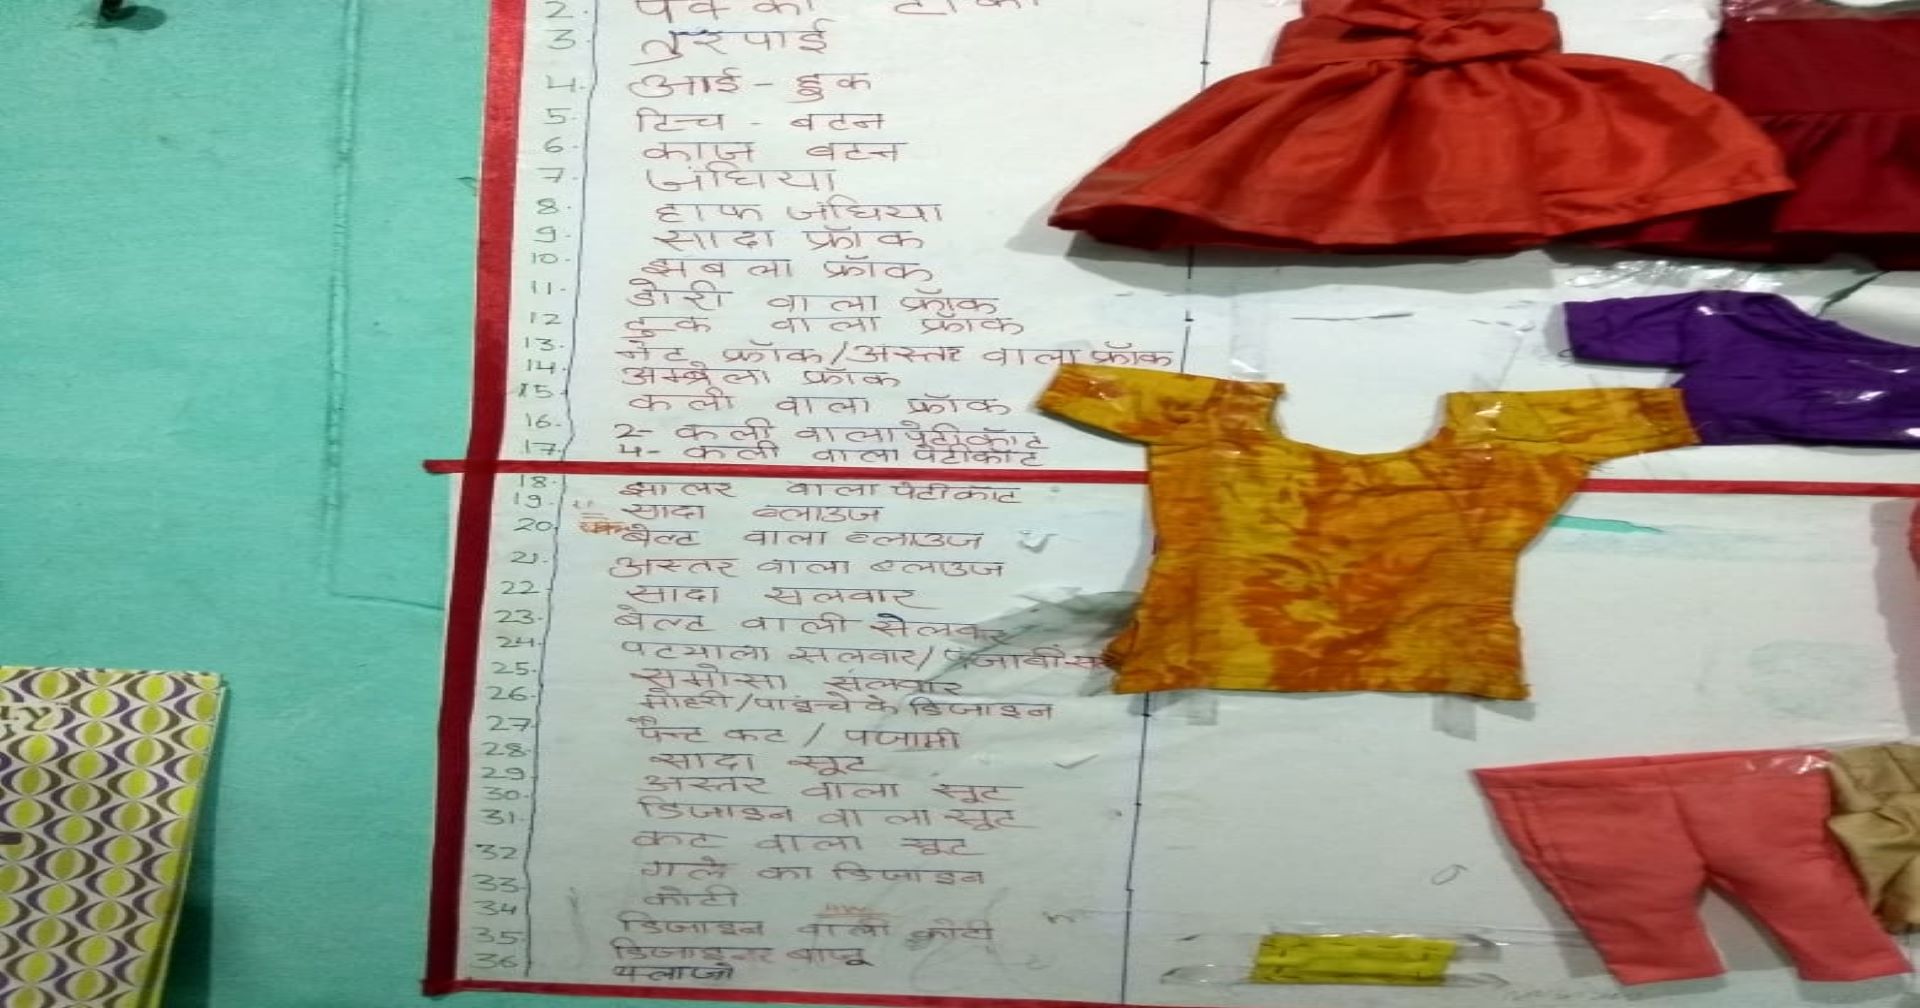 2. पक्का टाका
3. तुरपाई
4. आई - हुक
5. टिच - बटन
6. काज बटन
7. जंघिया
8. हाफ जंघिया
9. सादा फ्रॉक
10. झबला फ्रॉक
11. डोरी वाला फ्रॉक
12 टुक वाला फ्रॉक
13. नेट फ्रॉक/अस्तर वाला फ्रॉक
14. अम्ब्रेला फ्रॉक
15. कली वाला फ्रॉक
16. 2- कली वाला पेटीकॉट
17. 4- कली वाला पेटीकॉट
18. झालर वाला पेटीकॉट
19. सादा ब्लाउज
20. बेल्ट वाला ब्लाउज
21. अस्तर वाला ब्लाउज
22. सादा सलवार
23. बेल्ट वाली सेलवार
24. पटयाला सलवार/पंजाबी
25. समोसा सलवार
26. मोहरी/पाइन्चे के डिजाइन
27. पैन्ट कट / पजामी
28. सादा सूट
29. अस्तर वाला सूट
30. डिजाइन वाला सूट
31. कट वाला सूट
32 गले का डिजाइन
33. कोटी
34 डिजाइन वाली कोटी
35. डिजाइनर बाजू
36 पलाजो